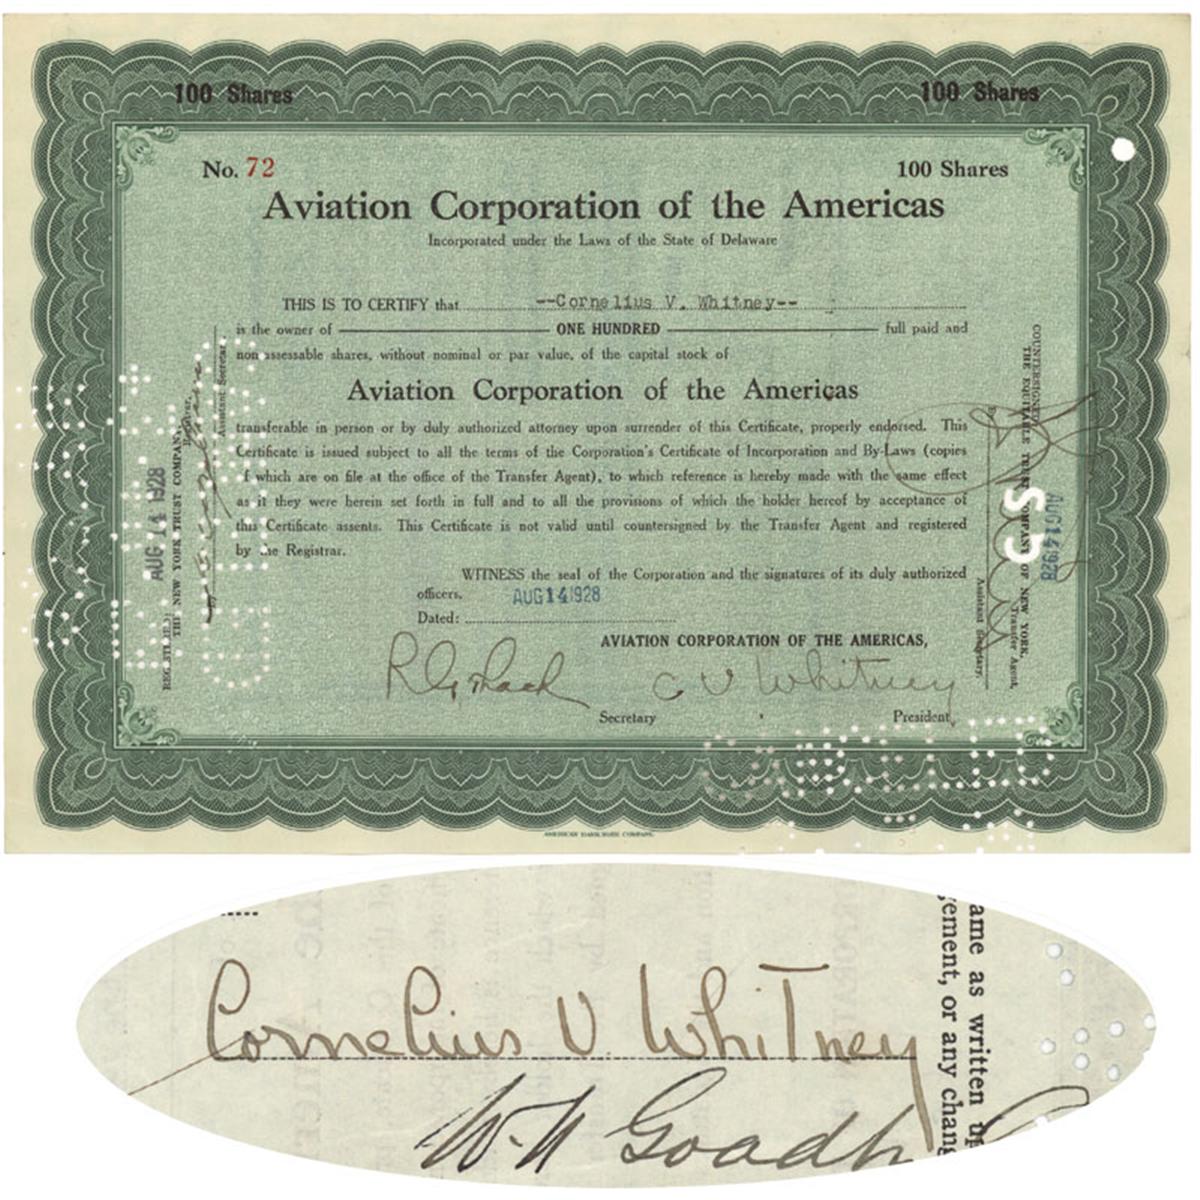 100 Shares 100 Shares
No. 72 100 Shares
Aviation Corporation of the Americas
Incorporated under the Laws of the State of Delaware
THIS IS TO CERTIFY that --Cornelius V. Whitney--
is the owner of ONE HUNDRED full paid and
non assessable shares, without nominal or par value, of the capital stock of
Aviation Corporation of the Americas
transferable in person or by duly authorized attorney upon surrender of this Certificate, properly endorsed. This
Certificate is issued subject to all the terms of the Corporation's Certificate of Incorporation and By-Laws (copies
of which are on file at the office of the Transfer Agent), to which reference is hereby made with the same effect
as if they were herein set forth in full and to all the provisions of which the holder hereof by acceptance of
this Certificate assents. This Certificate is not valid until countersigned by the Transfer Agent and registered
by the Registrar.
WITNESS the seal of the Corporation and the signatures of its duly authorized
officers. AUG 14 1928
Dated:
AVIATION CORPORATION OF THE AMERICAS,
C V Whitney
Secretary President
REGISTERED:
THE NEW YORK TRUST COMPANY,
Registrar.
AUG 14 1928
Assistant Secretary
COUNTERSIGNED
THE EQUITABLE TRUST COMPANY OF NEW YORK,
Transfer Agent,
By
Assistant Secretary.
AUG 14 1928
AMERICAN BANK NOTE COMPANY.
Cornelius V. Whitney
ame as written
gement, or any chang